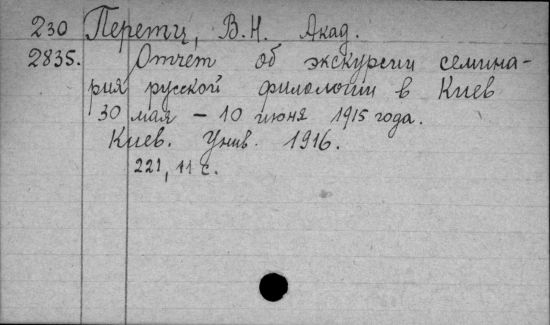 230 Перетц, В.Н. Акад.
2835. Отчет об экскурсии семина-
рия русской филологии в Киев
30 мая – 10 июня 1915 года.
Киев. Унив. 1916.
221, 11 с.